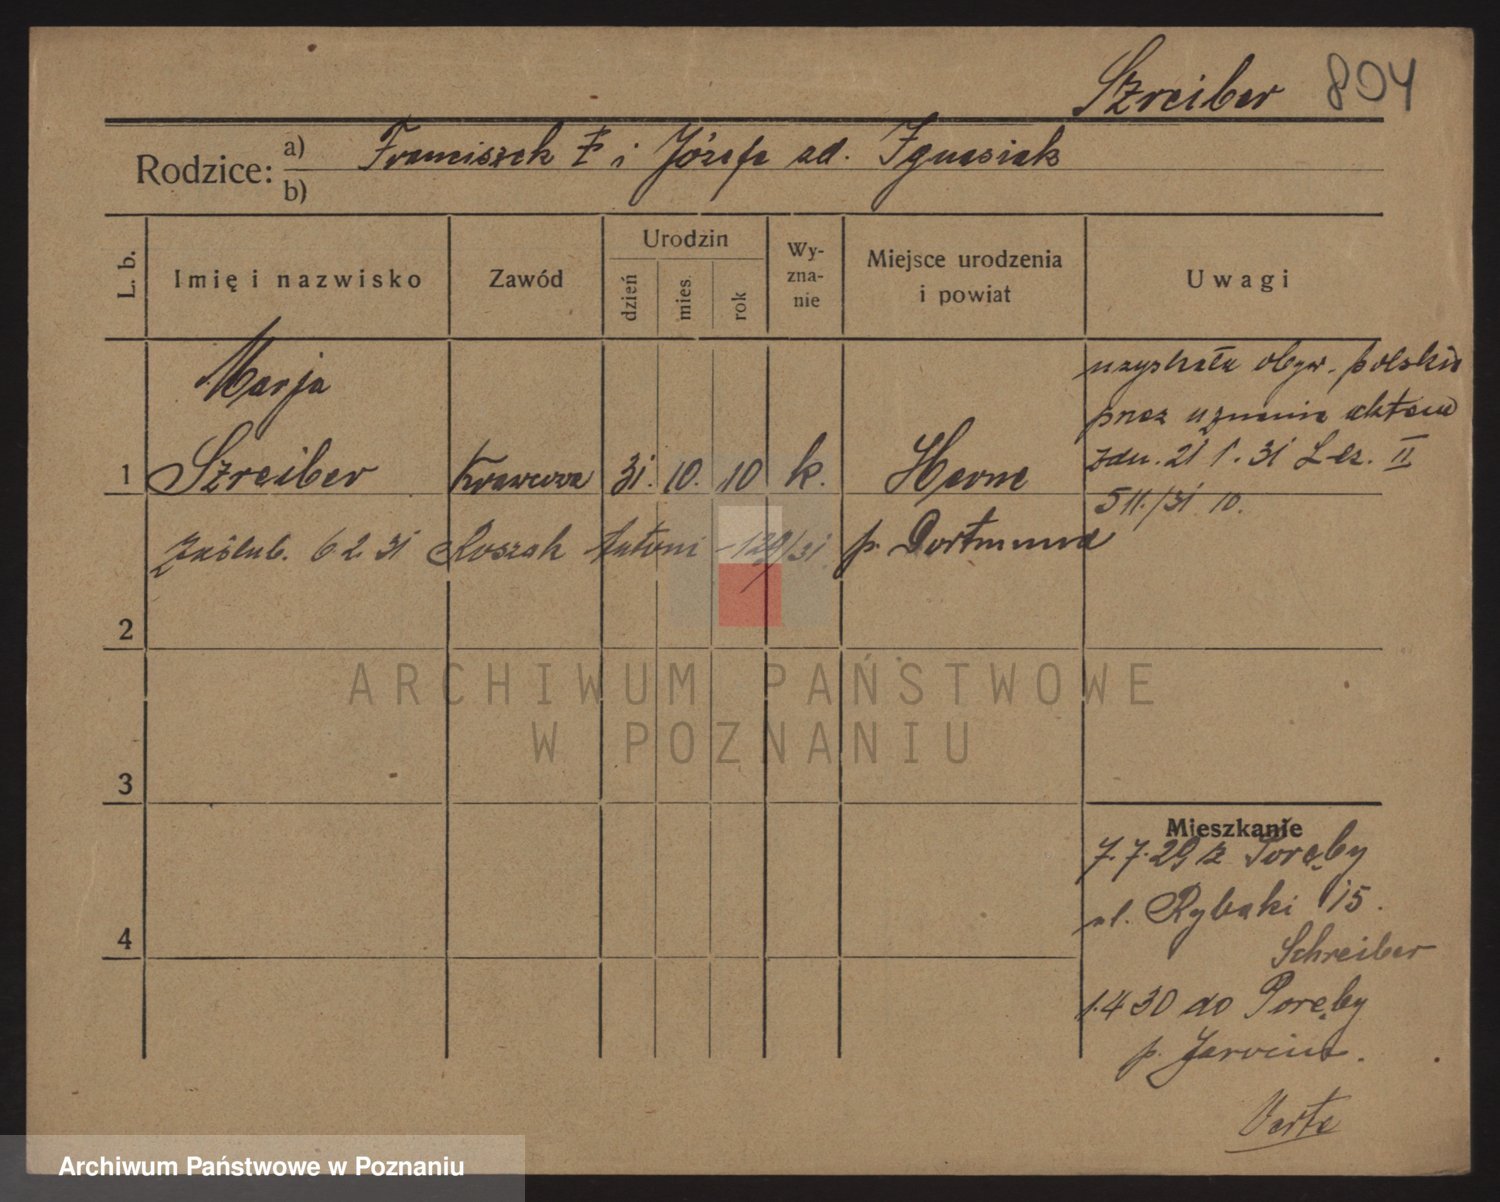 Szreiber 804
Rodzice:
a) Franciszek i Józefa zd. Ignasiak
b)
L. b.
Imię i nazwisko
Zawód
Urodzin
dzień
mies
rok
Wy-
zna-
nie
Miejsce urodzenia
i powiat
Uwagi
Marja
1 Szreiber Krawcowa 31. 10. 10 k. Herne
p. Dortmund
uzyskała obyw. polskie
przez uznanie aktem
zdn. 21 1. 31 L-cz. II
511./31 10.
Zaślub. 6 2 31 Roszak Antoni - 129/31
2
3
4
ARCHIWUM PAŃSTWOWE
W POZNANIU
Mieszkanie
7.7.29 z Poręby
ul. Rybaki 15.
Schreiber
1.4 30 do Poręby
p. Jarocin.
Verte
Archiwum Państwowe w Poznaniu